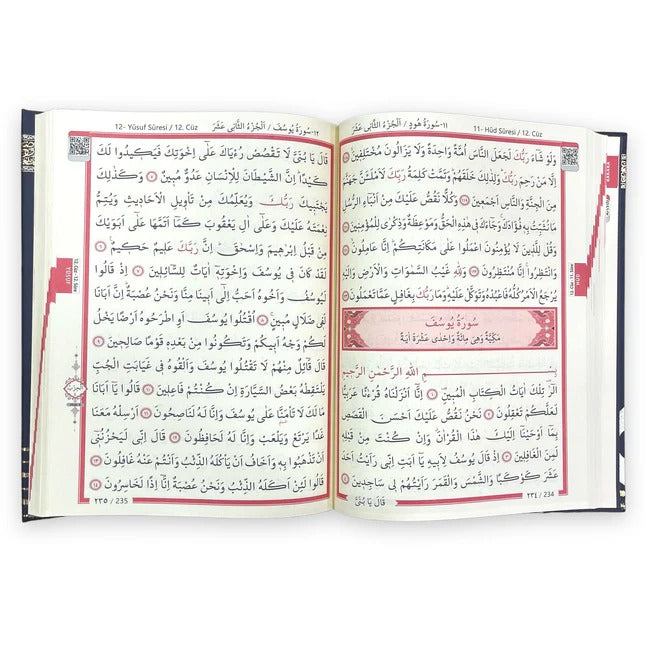 ١١-سُورَةُ هُودٍ / اَلْجُزْءُ الثَّانِي عَشَرَ
11- Hûd Sûresi / 12. Cüz
وَلَوْ شَاءَ رَبُّكَ لَجَعَلَ النَّاسَ اُمَّةً وَاحِدَةً وَلَا يَزَالُونَ مُخْتَلِفِينَ ۝
اِلَّا مَنْ رَحِمَ رَبُّكَ وَلِذٰلِكَ خَلَقَهُمْ وَتَمَّتْ كَلِمَةُ رَبِّكَ لَاَمْلَئَنَّ جَهَنَّمَ
مِنَ الْجِنَّةِ وَالنَّاسِ اَجْمَعِينَ ۝ وَكُلًّا نَقُصُّ عَلَيْكَ مِنْ اَنْبَاءِ الرُّسُلِ
مَا نُثَبِّتُ بِهِ فُؤَادَكَ وَجَاءَكَ فِي هٰذِهِ الْحَقُّ وَمَوْعِظَةٌ وَذِكْرٰى لِلْمُؤْمِنِينَ ۝
وَقُلْ لِلَّذِينَ لَا يُؤْمِنُونَ اعْمَلُوا عَلٰى مَكَانَتِكُمْ اِنَّا عَامِلُونَ ۝
وَانْتَظِرُوا اِنَّا مُنْتَظِرُونَ ۝ وَلِلّٰهِ غَيْبُ السَّمٰوَاتِ وَالْاَرْضِ وَاِلَيْهِ
يُرْجَعُ الْاَمْرُ كُلُّهُ فَاعْبُدْهُ وَتَوَكَّلْ عَلَيْهِ وَمَا رَبُّكَ بِغَافِلٍ عَمَّا تَعْمَلُونَ ۝
سُورَةُ يُوسُفَ
مَكِّيَّةٌ وَهِيَ مِائَةٌ وَاِحْدٰى عَشْرَةَ اٰيَةً
بِسْمِ اللّٰهِ الرَّحْمٰنِ الرَّحِيمِ
الٓرٰ تِلْكَ اٰيَاتُ الْكِتَابِ الْمُبِينِ ۝ اِنَّا اَنْزَلْنَاهُ قُرْءٰنًا عَرَبِيًّا
لَعَلَّكُمْ تَعْقِلُونَ ۝ نَحْنُ نَقُصُّ عَلَيْكَ اَحْسَنَ الْقَصَصِ
بِمَا اَوْحَيْنَا اِلَيْكَ هٰذَا الْقُرْاٰنَ وَاِنْ كُنْتَ مِنْ قَبْلِهِ
لَمِنَ الْغَافِلِينَ ۝ اِذْ قَالَ يُوسُفُ لِاَبِيهِ يَا اَبَتِ اِنِّي رَاَيْتُ اَحَدَ
عَشَرَ كَوْكَبًا وَالشَّمْسَ وَالْقَمَرَ رَاَيْتُهُمْ لِي سَاجِدِينَ ۝
٢٣٤ / 234
قَالَ يَا بُنَيَّ
HÛD
12. Cüz - 11. Sûre
BAKARA
١٢-سُورَةُ يُوسُفَ / اَلْجُزْءُ الثَّانِي عَشَرَ
12- Yûsuf Sûresi / 12. Cüz
قَالَ يَا بُنَيَّ لَا تَقْصُصْ رُءْيَاكَ عَلٰى اِخْوَتِكَ فَيَكِيدُوا لَكَ
كَيْدًا اِنَّ الشَّيْطَانَ لِلْاِنْسَانِ عَدُوٌّ مُبِينٌ ۝ وَكَذٰلِكَ
يَجْتَبِيكَ رَبُّكَ وَيُعَلِّمُكَ مِنْ تَأْوِيلِ الْاَحَادِيثِ وَيُتِمُّ
نِعْمَتَهُ عَلَيْكَ وَعَلٰى اٰلِ يَعْقُوبَ كَمَا اَتَمَّهَا عَلٰى اَبَوَيْكَ
مِنْ قَبْلُ اِبْرٰهِيمَ وَاِسْحٰقَ اِنَّ رَبَّكَ عَلِيمٌ حَكِيمٌ ۝
لَقَدْ كَانَ فِي يُوسُفَ وَاِخْوَتِهِ اٰيَاتٌ لِلسَّائِلِينَ ۝ اِذْ قَالُوا
لَيُوسُفُ وَاَخُوهُ اَحَبُّ اِلٰى اَبِينَا مِنَّا وَنَحْنُ عُصْبَةٌ اِنَّ اَبَانَا
لَفِي ضَلَالٍ مُبِينٍ ۝ اُقْتُلُوا يُوسُفَ اَوِ اطْرَحُوهُ اَرْضًا يَخْلُ
لَكُمْ وَجْهُ اَبِيكُمْ وَتَكُونُوا مِنْ بَعْدِهِ قَوْمًا صَالِحِينَ ۝
قَالَ قَائِلٌ مِنْهُمْ لَا تَقْتُلُوا يُوسُفَ وَاَلْقُوهُ فِي غَيَابَتِ الْجُبِّ
يَلْتَقِطْهُ بَعْضُ السَّيَّارَةِ اِنْ كُنْتُمْ فَاعِلِينَ ۝ قَالُوا يَا اَبَانَا
مَا لَكَ لَا تَأْمَنَّا عَلٰى يُوسُفَ وَاِنَّا لَهُ لَنَاصِحُونَ ۝ اَرْسِلْهُ مَعَنَا
غَدًا يَرْتَعْ وَيَلْعَبْ وَاِنَّا لَهُ لَحَافِظُونَ ۝ قَالَ اِنِّي لَيَحْزُنُنِي
اَنْ تَذْهَبُوا بِهِ وَاَخَافُ اَنْ يَأْكُلَهُ الذِّئْبُ وَاَنْتُمْ عَنْهُ غَافِلُونَ ۝
قَالُوا لَئِنْ اَكَلَهُ الذِّئْبُ وَنَحْنُ عُصْبَةٌ اِنَّا اِذًا لَخَاسِرُونَ ۝
٢٣٥ / 235
YÛSUF
12. Cüz - 12. Sûre